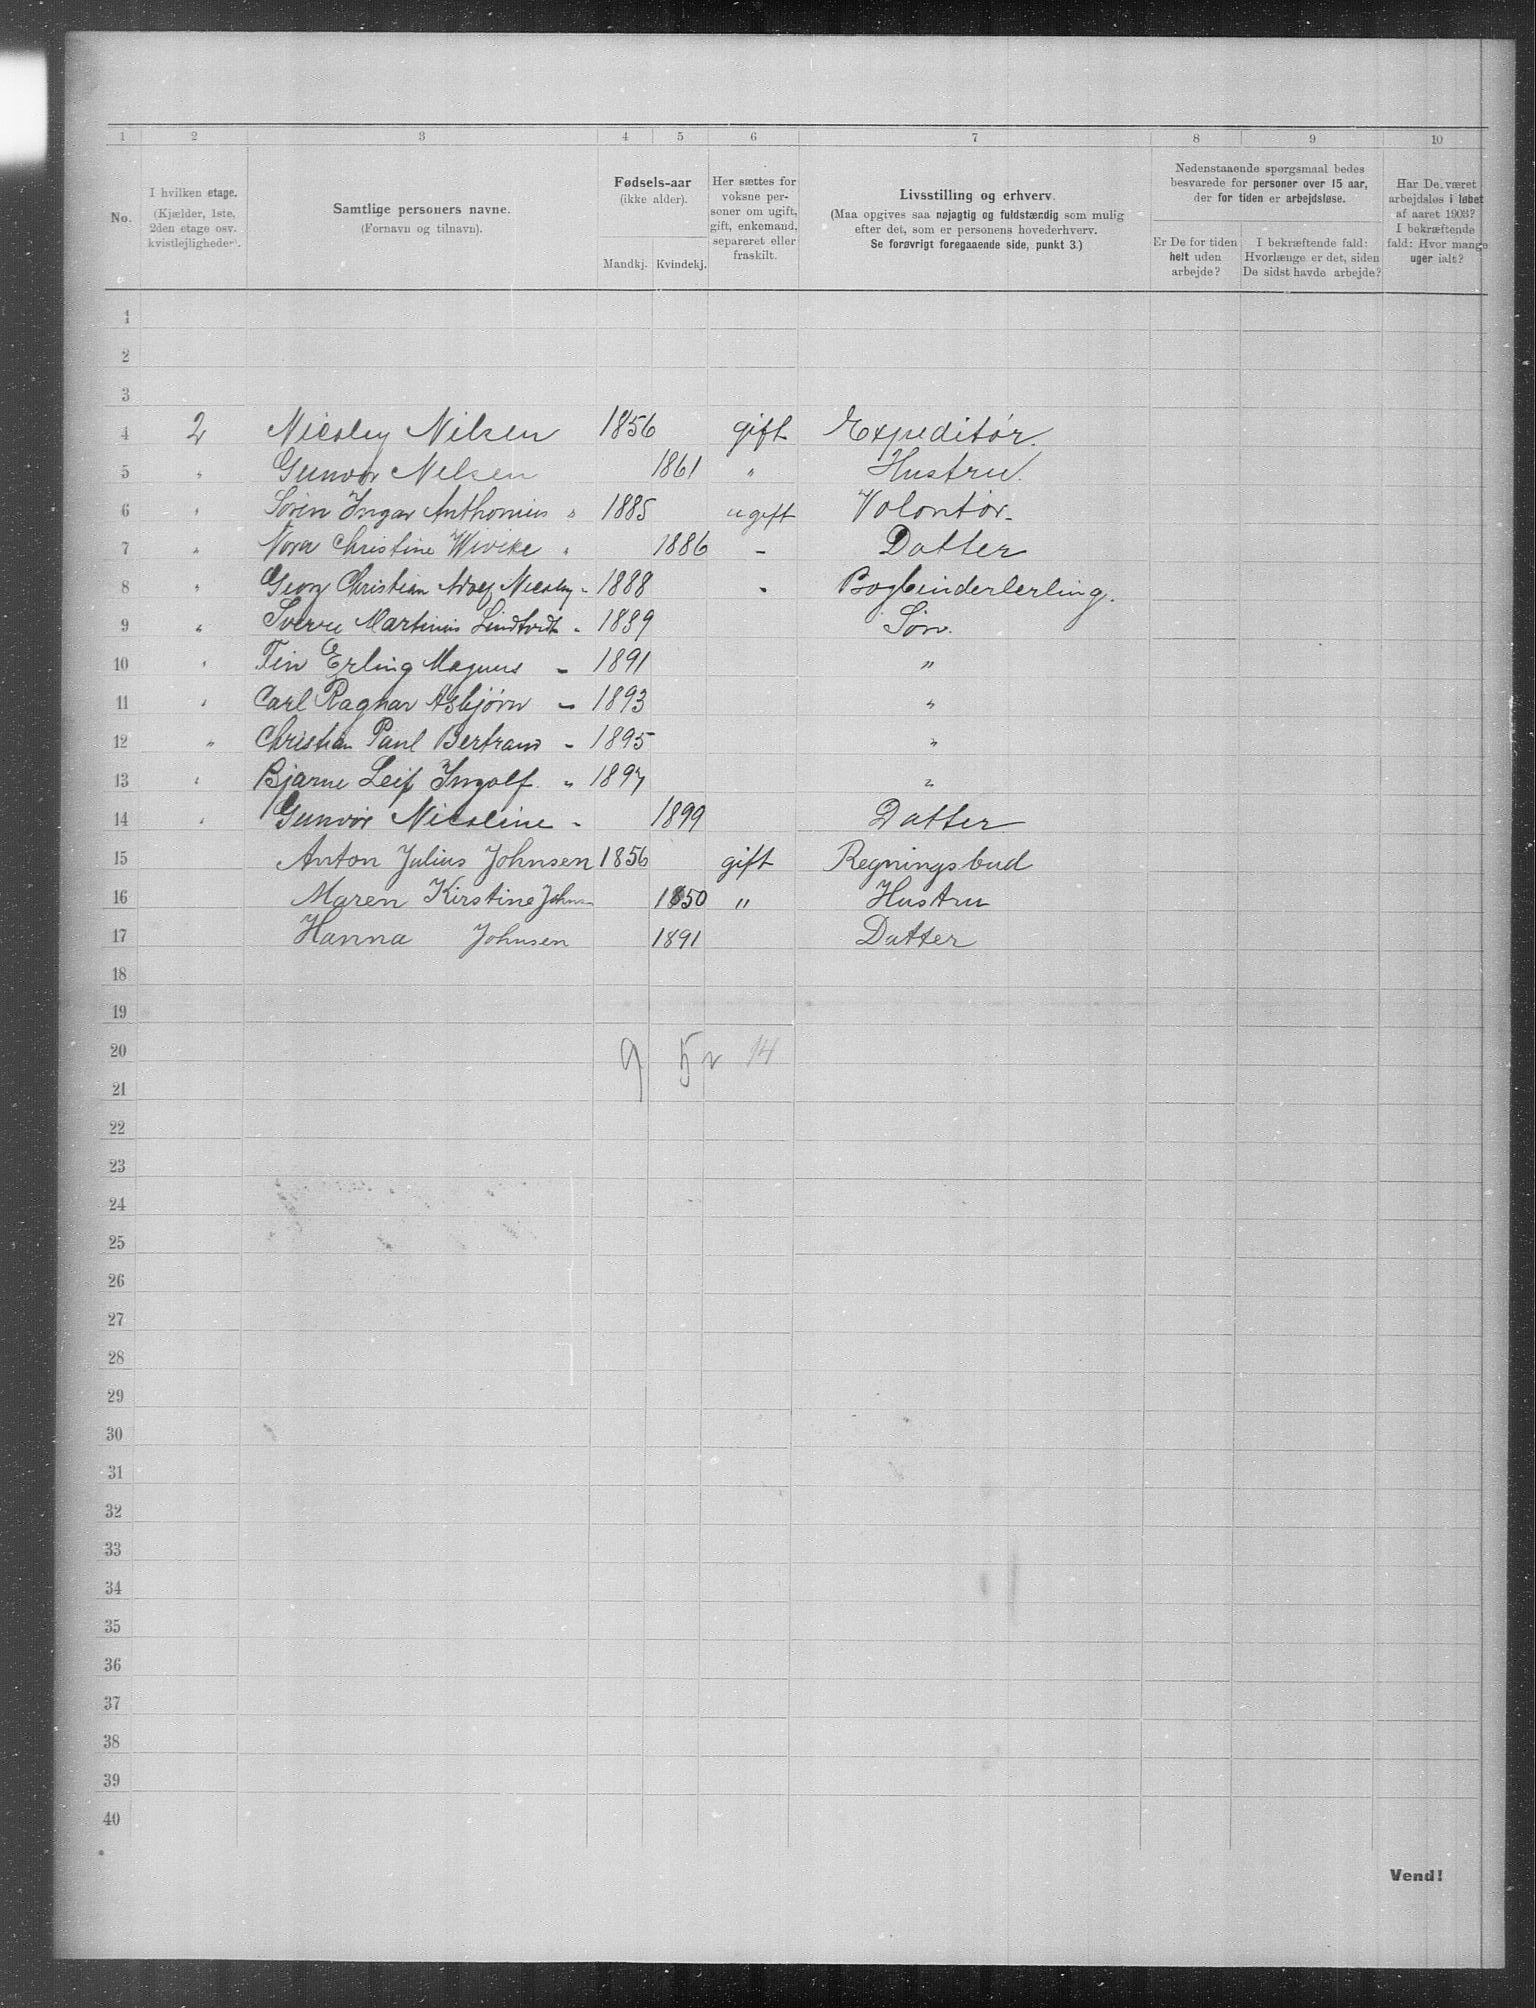 1 2 3 4 5 6 7 8 9 10
No.
I hvilken etage.
(Kjælder, 1ste,
2den etage osv.
kvistlejligheder).
Samtlige personers navne.
(Fornavn og tilnavn).
Fødsels-aar
(ikke alder).
Mandkj. Kvindekj.
Her sættes for
voksne per-
soner om ugift,
gift, enkemand,
separeret eller
fraskilt.
Livsstilling og erhverv.
(Maa opgives saa nøjagtig og fuldstændig som mulig
efter det, som er personens hovederhverv.
Se forøvrigt foregaaende side, punkt 3.)
Nedenstaaende spørgsmaal bedes
besvarede for personer over 15 aar,
der for tiden er arbejdsløse.
Er De for tiden
helt uden
arbejde?
I bekræftende fald:
Hvorlænge er det, siden
De sidst havde arbejde?
Har De været
arbejdsløs i løbet
af aaret 1903?
I bekræftende
fald: Hvor mange
uger ialt?
1
2
3
4 2 Nicolay Nilsen 1856 gift Expeditør.
5 " Gunvor Nilsen 1861 " Hustru.
6 " Søren Ingar Anthonius " 1885 ugift Volontør.
7 " Nora Christine Wivike " 1886 - Datter
8 " Georg Christian Adolf Nicolay - 1888 " Bogbinderlerling.
9 " Sverre Martinus - 1889 Søn.
10 " Fin Erling Magnus - 1891 "
11 " Carl Ragnar Asbjørn - 1893 "
12 " Christian Paul Bertrand - 1895 "
13 " Bjarne Leif Ingolf. " 1897 "
14 " Gunvor Nicoline - 1899 Datter
15 Anton Julius Johnsen 1856 gift Regningsbud
16 Maren Kirstine Johns 1850 " Hustru
17 Hanna Johnsen 1891 Datter
18
19
20 9 5 14
21
22
23
24
25
26
27
28
29
30
31
32
33
34
35
36
37
38
39
40
Vend!